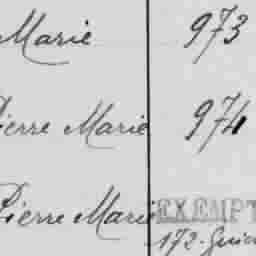 Marie 973
Pierre Marie 974
Pierre Marie EXEMPT
172.